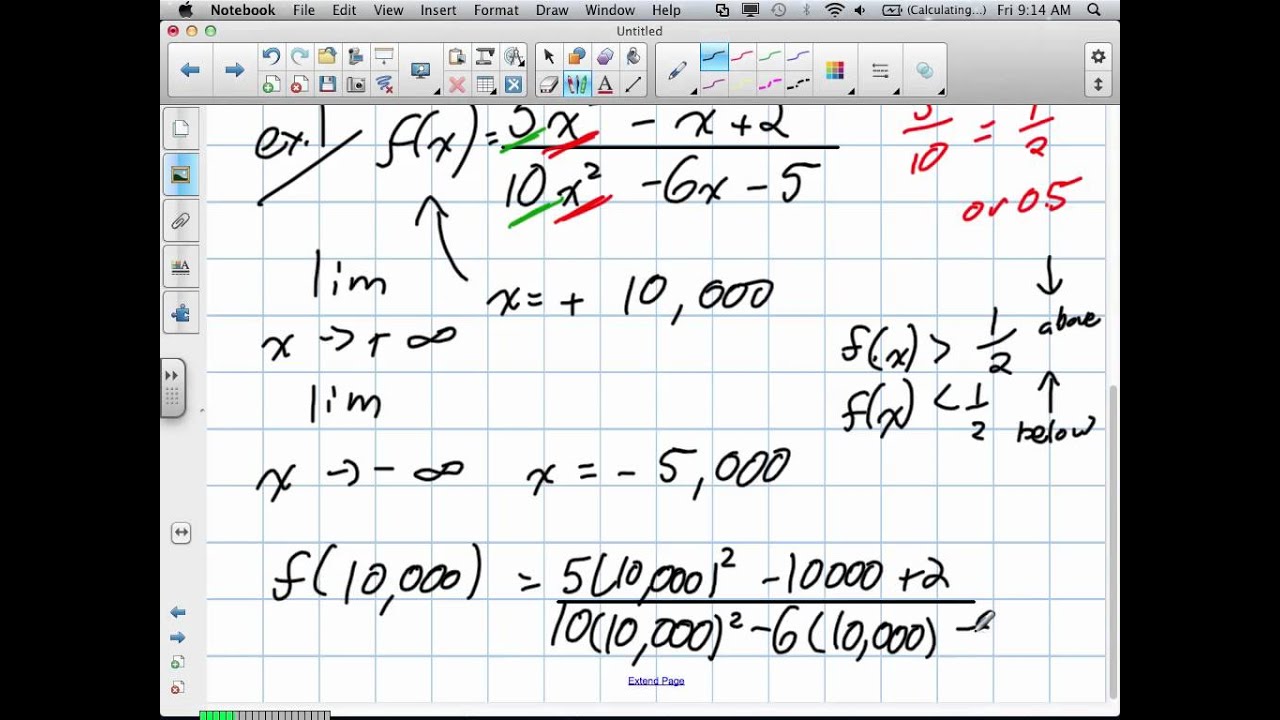 Notebook File Edit View Insert Format Draw Window Help (Calculating...) Fri 9:14 AM
Untitled
ex.1 f(x) = 5x² - x + 2
10x² - 6x - 5
5/10 = 1/2
or 0.5
lim
x → + ∞
x = + 10,000
f(x) > 1/2 above
lim
f(x) < 1/2 below
x → - ∞ x = - 5,000
f(10,000) = 5(10,000)² - 10000 + 2
10(10,000)² - 6(10,000) -
Extend Page